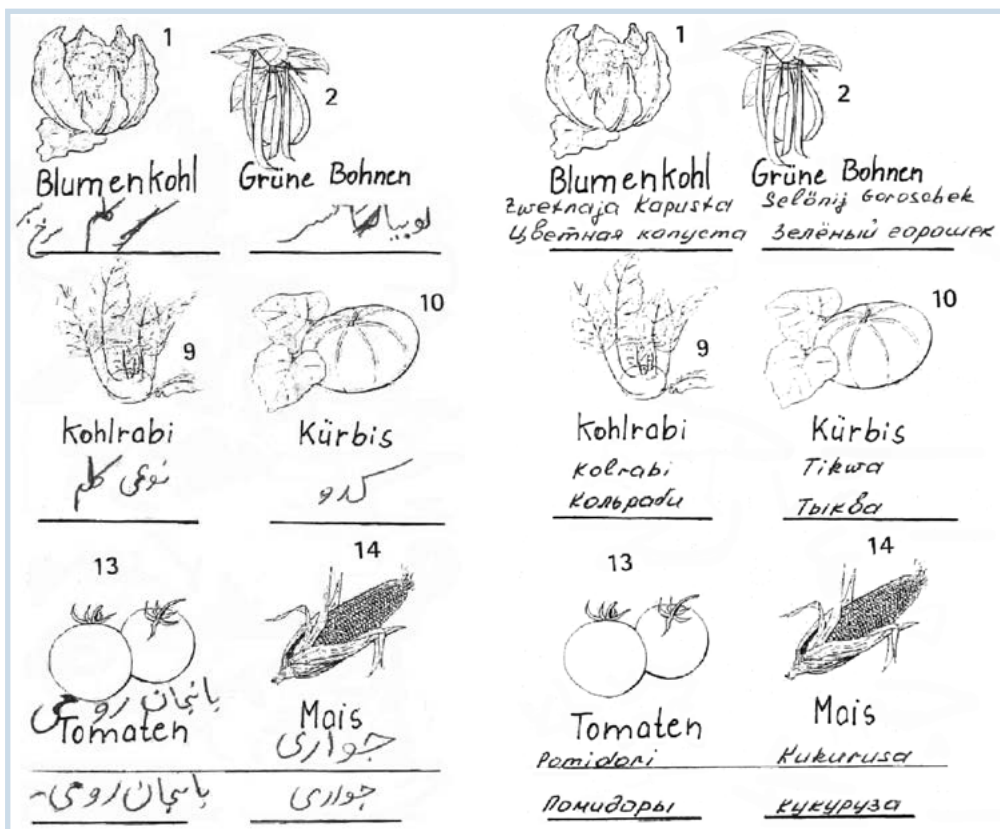 1
2
Blumenkohl Grüne Bohnen
لوبیا
9
10
Kohlrabi Kürbis
نوعی کلم کدو
13
14
بانجان رومی
Tomaten Mais
جواری
بانجان رومی جواری
1
2
Blumenkohl Grüne Bohnen
Zwetnaja Kapusta Selönij Goroschek
Цветная капуста Зелёный горошек
9
10
Kohlrabi Kürbis
Kolrabi Tikwa
Кольраби Тыква
13
14
Tomaten Mais
Pomidori Kukurusa
Помидоры Кукуруза